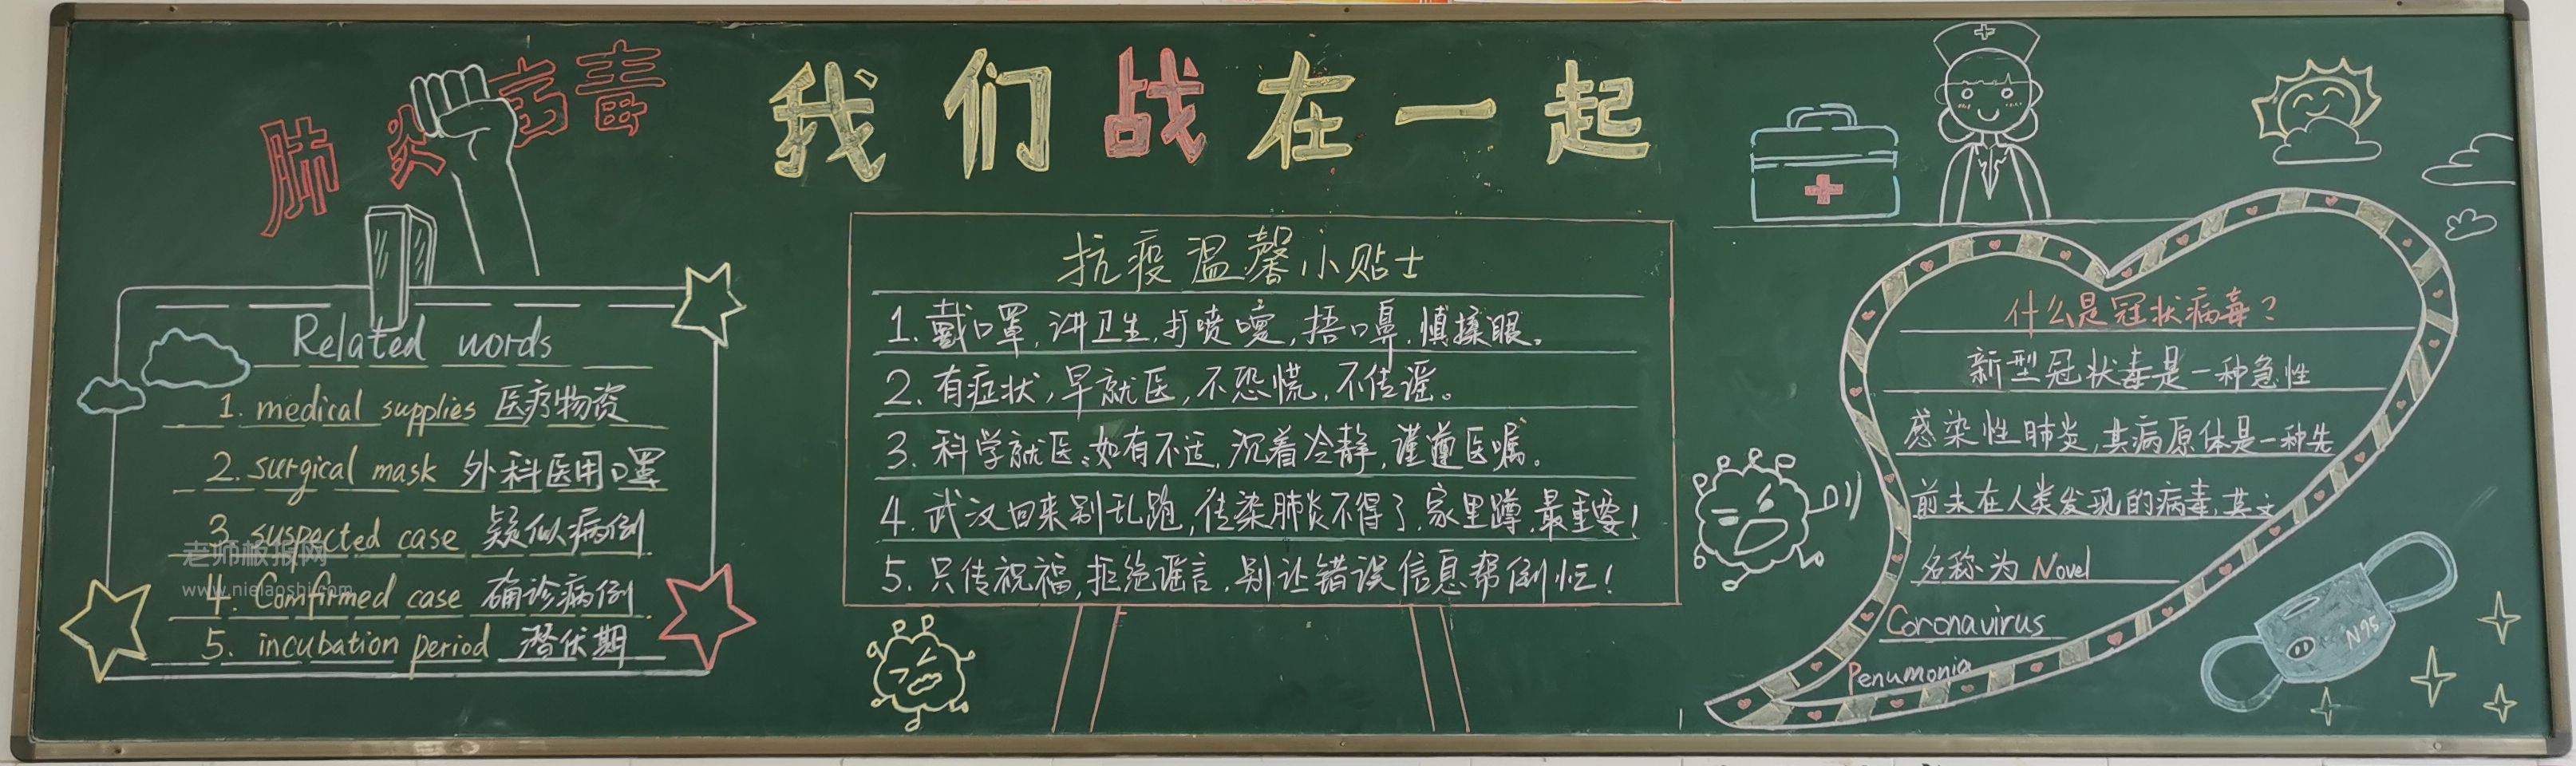 肺炎病毒
我们战在一起
Related words
1. medical supplies 医疗物资
2. surgical mask 外科医用口罩
3. suspected case 疑似病例
4. Comfirmed case 确诊病例
5. incubation period 潜伏期
老师板报网
www.nielaoshi.com
抗疫温馨小贴士
1. 戴口罩,讲卫生,打喷嚏,捂口鼻,慎揉眼。
2. 有症状,早就医,不恐慌,不传谣。
3. 科学就医:如有不适,沉着冷静,谨遵医嘱。
4. 武汉回来别乱跑,传染肺炎不得了,家里蹲,最重要!
5. 只传祝福,拒绝谣言,别让错误信息帮倒忙!
什么是冠状病毒?
新型冠状毒是一种急性
感染性肺炎,其病原体是一种先
前未在人类发现的病毒,其文
名称为 Novel
Coronavirus
Penumonia
N95